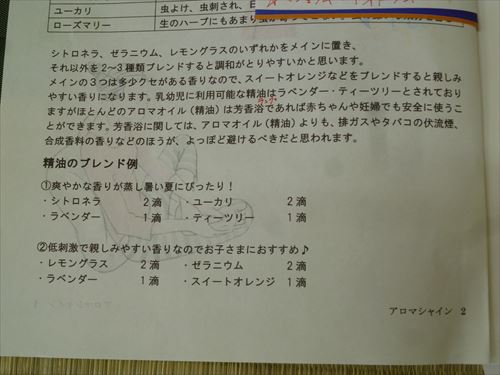 ユーカリ 虫よけ、虫刺され、日
ローズマリー 生のハーブにもあまり虫が
シトロネラ、ゼラニウム、レモングラスのいずれかをメインに置き、
それ以外を2～3種類ブレンドすると調和がとりやすいかと思います。
メインの3つは多少クセがある香りなので、スイートオレンジなどをブレンドすると親しみ
やすい香りになります。乳幼児に利用可能な精油はラベンダー・ティーツリーとされており
ますがほとんどのアロマオイル（精油）は芳香浴であれば赤ちゃんや妊婦でも安全に使うこ
とができます。芳香浴に関しては、アロマオイル（精油）よりも、排ガスやタバコの伏流煙、
合成香料の香りなどのほうが、よっぽど避けるべきだと思われます。
精油のブレンド例
①爽やかな香りが蒸し暑い夏にぴったり！
・シトロネラ 2滴 ・ユーカリ 2滴
・ラベンダー 1滴 ・ティーツリー 1滴
②低刺激で親しみやすい香りなのでお子さまにおすすめ♪
・レモングラス 2滴 ・ゼラニウム 2滴
・ラベンダー 1滴 ・スイートオレンジ 1滴
アロマシャイン 2